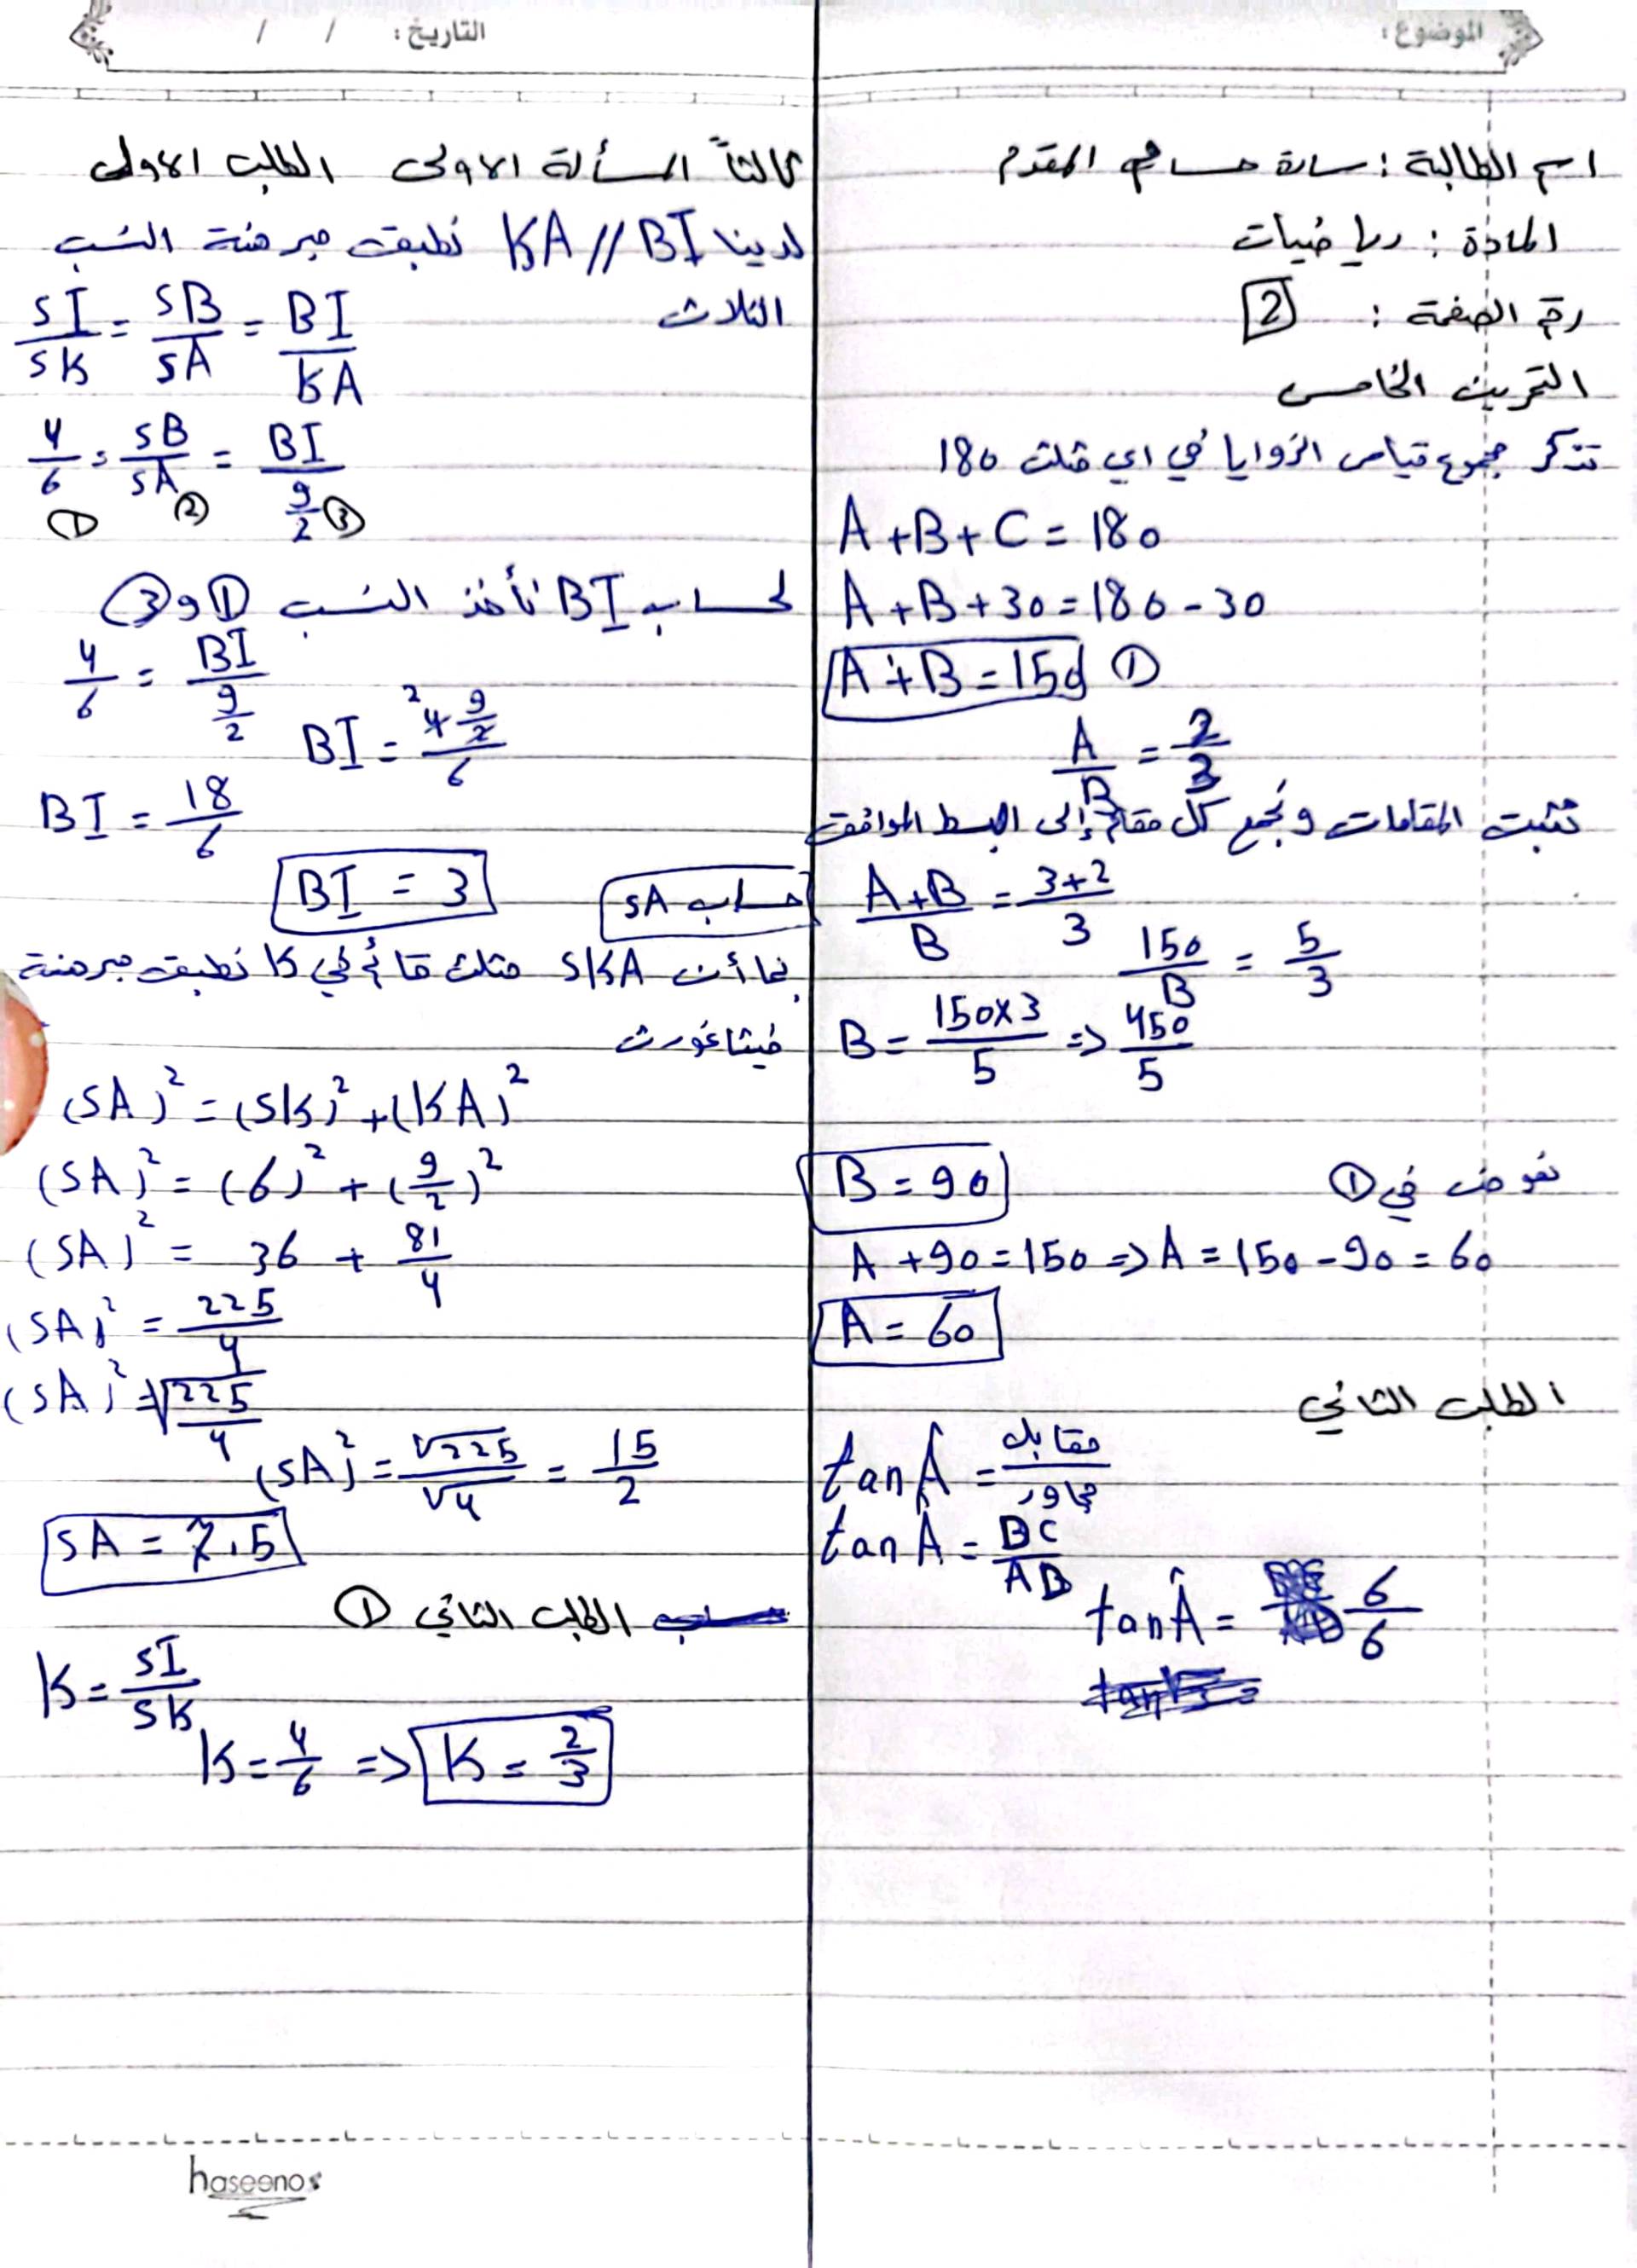 الموضوع:
التاريخ: / /
اسم الطالبة: سارة حسام المقدم
المادة: رياضيات
رقم الصفحة: 2
التمرين الخامس
تذكر مجموع قياس الزوايا في اي مثلث 180
A+B+C=180
A+B+30=180-30
A+B=150 ①
A/B = 2/3
نثبت المقامات و نجمع كل مقام إلى البسط الموافق
A+B/B = 3+2/3
150/B = 5/3
B = 150x3/5 => 450/5
B=90 نعوض في ①
A+90=150 => A=150-90=60
A=60
الطلب الثاني
tan Â = مقابل/مجاور
tan Â = BC/AB
tan Â = 6/6
ثالثاً المسألة الاولى الطلب الاولى
لدينا KA//BI نطبق مبرهنة النسب
الثلاث
SI/SK = SB/SA = BI/KA
4/6 = SB/SA = BI/(9/2)
① ② ③
لحساب BI نأخذ النسب ① و ③
4/6 = BI/(9/2)
BI = 4 9/2 / 6
BI = 18/6
BI = 3
حساب SA
بما أن SKA مثلث قائم في K نطبق مبرهنة
فيثاغورث
(SA)² = (SK)² + (KA)²
(SA)² = (6)² + (9/2)²
(SA)² = 36 + 81/4
(SA)² = 225/4
(SA)² = √225/4
(SA)² = √225/√4 = 15/2
SA = 7.5
الطلب الثاني ①
K = SI/SK
K = 4/6 => K = 2/3
haseenos